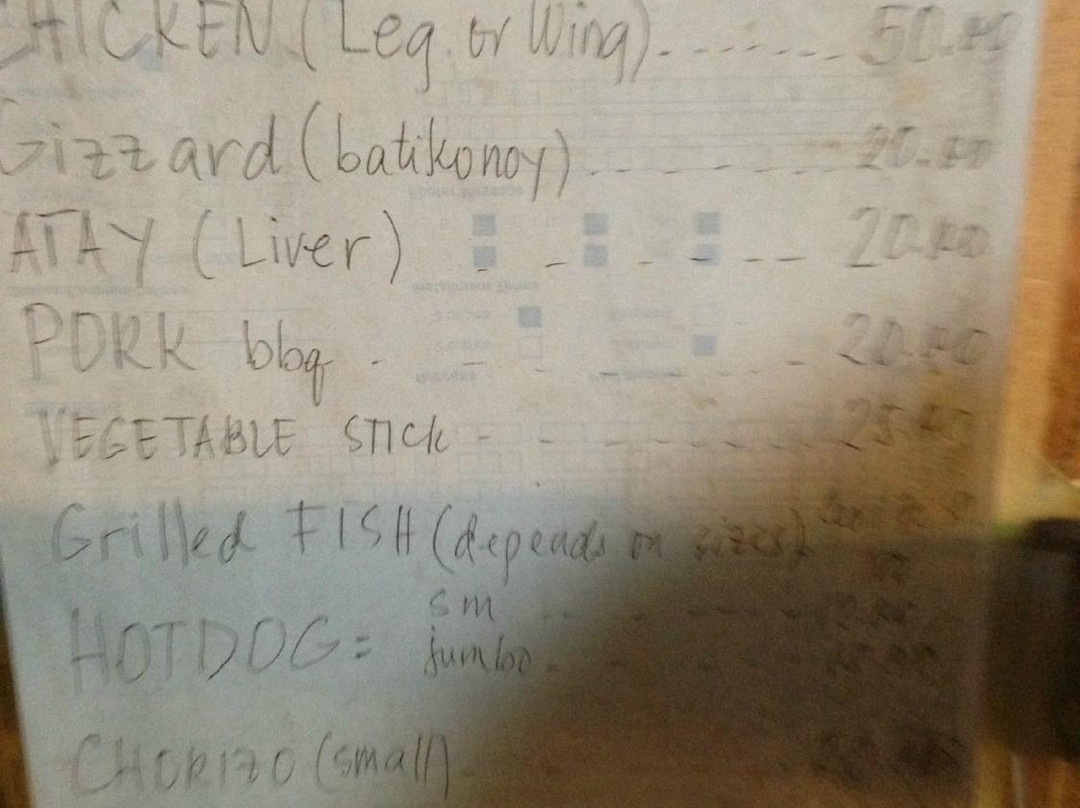 CHICKEN (Leg or Wing)......... 50.00
Gizzard (batikonoy)......... 20.00
ATAY (Liver) - - - - - - 20.00
PORK bbq . - - - - - 20.00
VEGETABLE STICK - - - - - - - 25.00
Grilled FISH (depends on sizes)
sm
HOTDOG =
jumbo
CHORIZO (small)